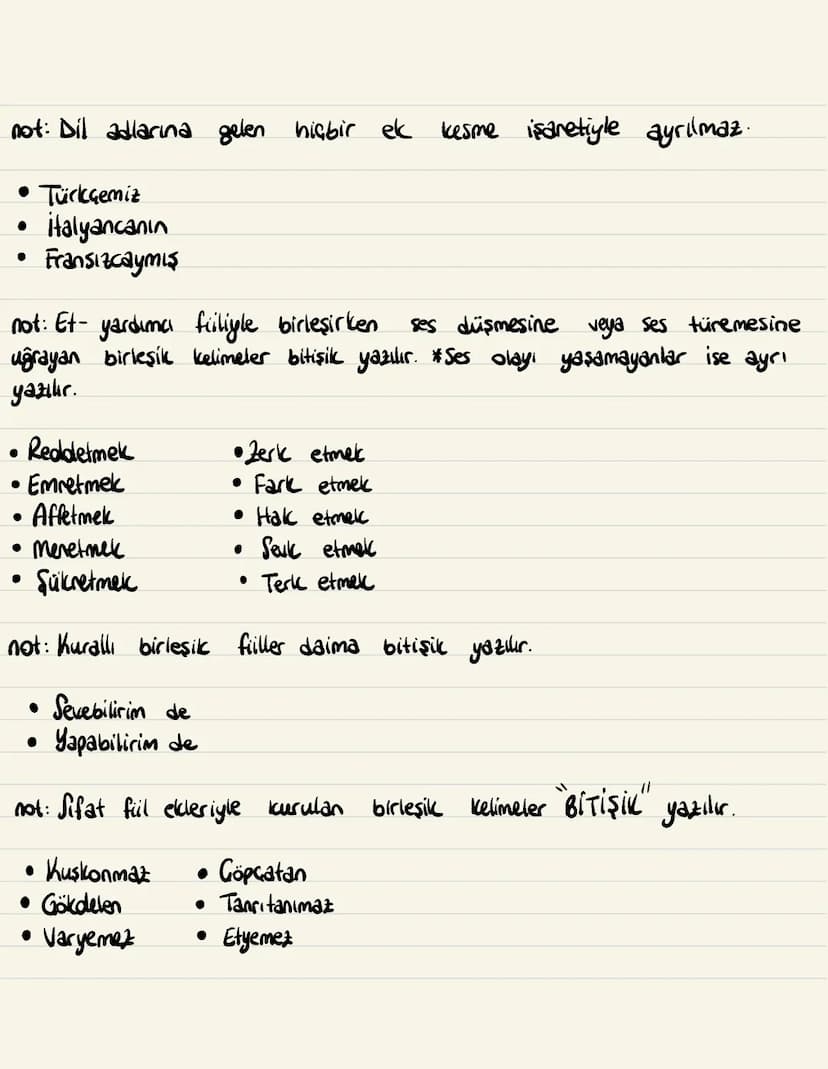 not: Dil adlarına gelen hiçbir ek kesme işaretiyle ayrılmaz.
• Türkçemiz
• İtalyancanın
• Fransızcaymış
not: Et- yardımcı fiiliyle birleşirken ses düşmesine veya ses türemesine
uğrayan birleşik kelimeler bitişik yazılır. *Ses olayı yaşamayanlar ise ayrı
yazılır.
• Reddetmek
• Emretmek
• Affetmek
• Menetmek
• Şükretmek
• Zerk etmek
• Fark etmek
• Hak etmek
• Sevk etmek
• Terk etmek
not: Kurallı birleşik fiiller daima bitişik yazılır.
• Sevebilirim de
• Yapabilirim de
not: Sıfat fiil ekleriyle kurulan birleşik kelimeler "BİTİŞİK" yazılır.
• Kuşkonmaz
• Gökdelen
• Varyemez
• Çöpçatan
• Tanrıtanımaz
• Etyemez